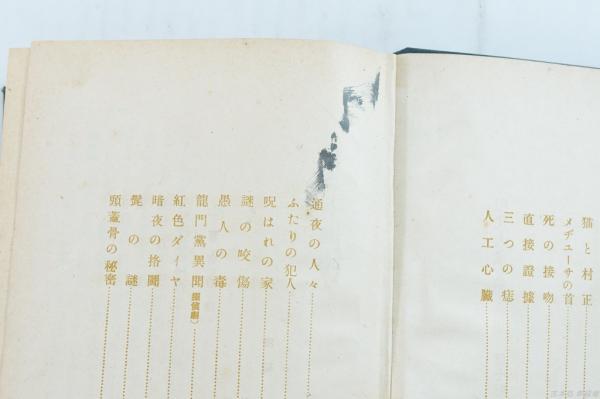 猫と村正
メヂューサの首
死の接吻
直接證據
三つの痣
人工心臓
通夜の人々
ふたりの犯人
呪はれの家
謎の咬傷
愚人の毒
龍門黨異聞(探偵劇)
紅色ダイヤ
暗夜の挌鬪
髭の謎
頭蓋骨の秘密